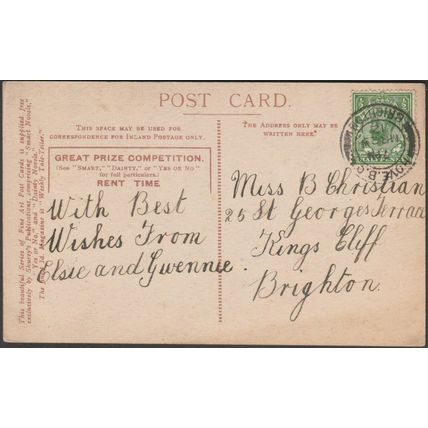 POST CARD.
THIS SPACE MAY BE USED FOR
CORRESPONDENCE FOR INLAND POSTAGE ONLY.
THE ADDRESS ONLY MAY BE
WRITTEN HERE.
GREAT PRIZE COMPETITION.
(See "SMART," "DAINTY," or "YES OR NO"
for full particulars.)
RENT TIME
With Best
Wishes From
Elsie and Gwennie.
Miss B Christian
25 St Georges Terrace
Kings Cliff
Brighton.
This beautiful Series of Fine Art Post Cards is supplied free
exclusively by Shurey's Publications, comprising "Smart Novels,"
"Yes or No," and "Dainty Novels."
The finest 1d. Magazine is "Weekly Tale-Teller."
BRIGHTON
HOVE